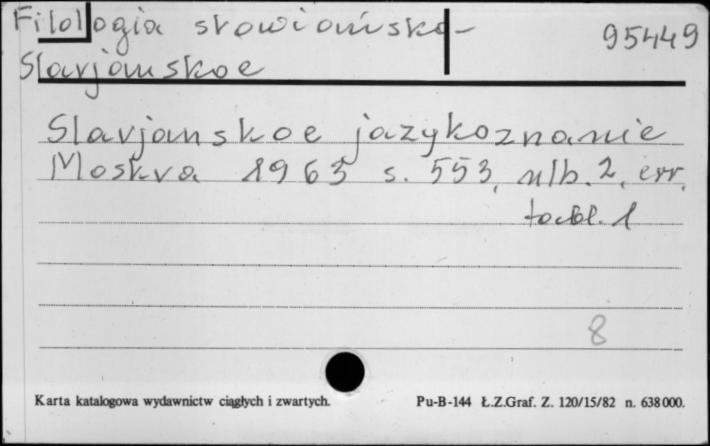 Filologia słowiańska-
95449
Slavjanskoe
Slavjanskoe jazykoznanie
Moskva 1963 s. 553, nlb. 2, err,
tabl. 1
8
Karta katalogowa wydawnictw ciągłych i zwartych.
Pu-B-144 Ł.Z.Graf. Z. 120/15/82 n. 638000.